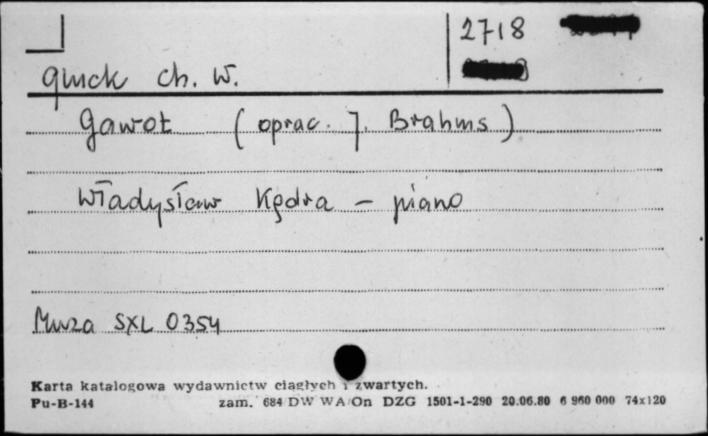 2718
Gluck Ch. W.
Gawot (oprac. J. Brahms)
Władysław Kędra - piano
Muza SXL 0354
Karta katalogowa wydawnictw ciągłych i zwartych.
Pu-B-144 zam. 684 DW WA/On DZG 1501-1-290 20.06.80 6 960 000 74x120